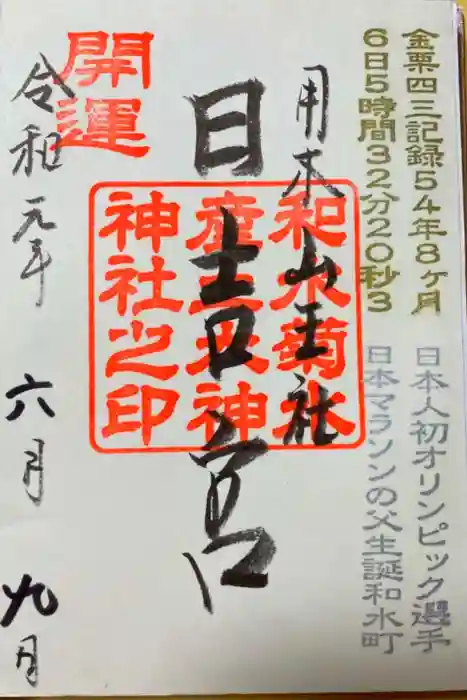 金栗四三記録54年8ヶ月
6日5時間32分20秒3
日本人初オリンピック選手
日本マラソンの父生誕和水町
用木山王社
日吉宮
和水菊水
産土大神
神社之印
開運
令和元年 六月 九月